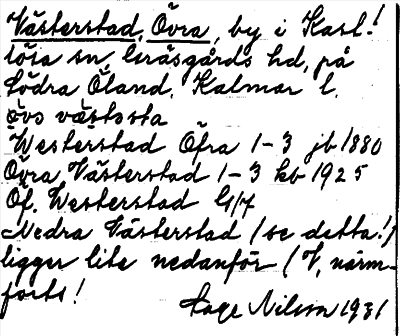 Västerstad, Övra, by i Kast-!
lösa sn, Gräsgårds hd, på
Södra Öland, Kalmar l.
övs væstosta
Westerstad Öfra 1-3 jb 1880
Övra Västerstad 1-3 kb 1925
Öf. Westerstad
Nedra Västerstad (se detta!)
ligger lite nedanför (V, närm-
fort!
Sage Nilson 1931